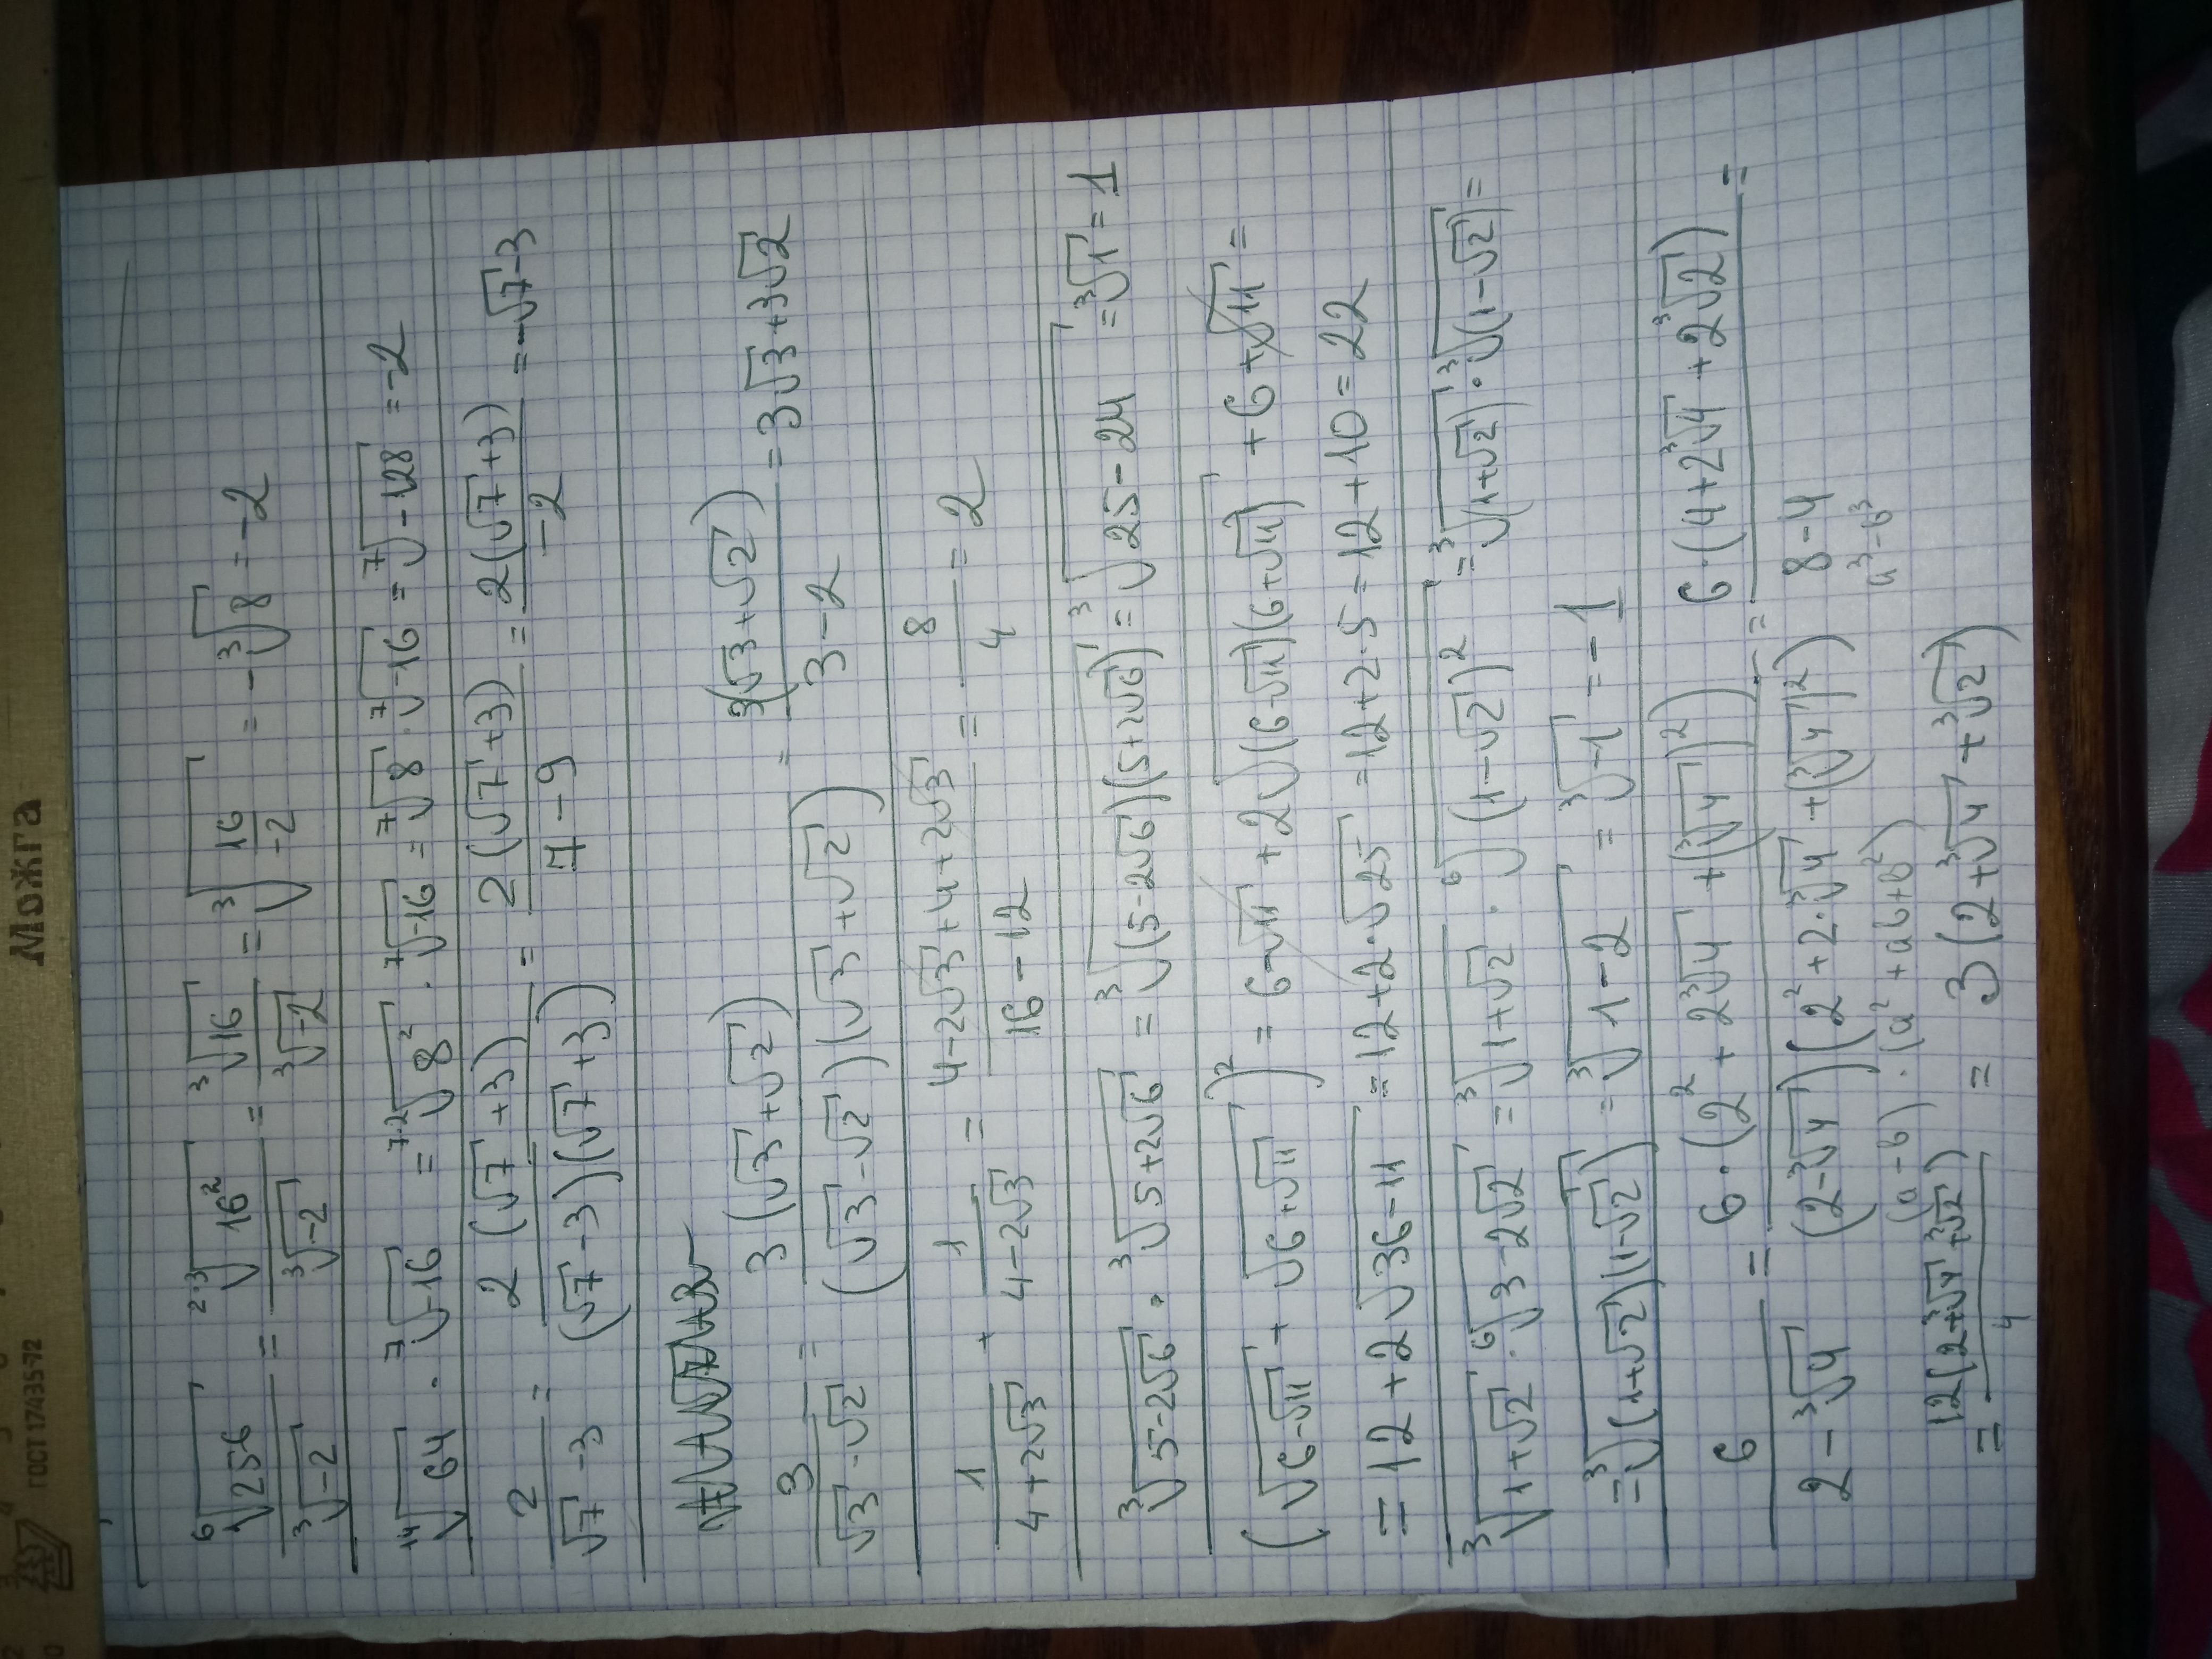 Можга
ГОСТ 17435-72
⁶√256 / ³√-2 = ²·³√16² / ³√-2 = ³√16 / ³√-2 = ³√(16/-2) = -³√8 = -2
¹⁴√64 · ⁷√-16 = ⁷·²√8² · ⁷√-16 = ⁷√8 · ⁷√-16 = ⁷√-128 = -2
2/(√7-3) = 2(√7+3)/((√7-3)(√7+3)) = 2(√7+3)/(7-9) = 2(√7+3)/-2 = -√7-3
3/(√3-√2) = 3(√3+√2)/((√3-√2)(√3+√2)) = 3(√3+√2)/(3-2) = 3√3+3√2
1/(4+2√3) + 1/(4-2√3) = (4-2√3+4+2√3)/(16-12) = 8/4 = 2
³√(5-2√6) · ³√(5+2√6) = ³√((5-2√6)(5+2√6)) = ³√(25-24) = ³√1 = 1
(√(6-√11) + √(6+√11))² = 6-√11 + 2√((6-√11)(6+√11)) + 6+√11 =
= 12+2√(36-11) = 12+2·√25 = 12+2·5 = 12+10 = 22
³√(1+√2) · ⁶√(3-2√2) = ³√(1+√2) · ⁶√((1-√2)²) = ³√(1+√2) · ³√(1-√2) =
= ³√((1+√2)(1-√2)) = ³√(1-2) = ³√-1 = -1
6/(2-³√4) = 6·(2²+2³√4+(³√4)²)/((2-³√4)(2²+2·³√4+(³√4)²)) = 6·(4+2³√4+2³√2)/(8-4) =
(a-b)·(a²+ab+b²) a³-b³
= 12(2+³√4+³√2)/4 = 3(2+³√4+³√2)